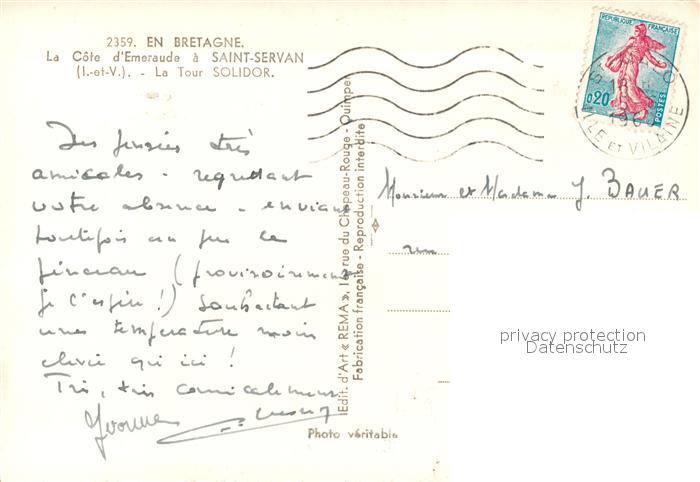 2359. EN BRETAGNE.
La Côte d'Emeraude à SAINT-SERVAN
(I.-et-V.). - La Tour SOLIDOR.
Des pensées très
amicales - regrettant
votre absence - enviant
toutefois un peu le
pinceau (provisoirement
je l'espère !) souhaitant
une température moins
élevée qu'ici !
Très, très amicalement
Yvonne
Edit. d'Art « REMA », 16, rue du Chapeau-Rouge - Quimper
Fabrication française - Reproduction interdite
Photo véritable
REPUBLIQUE FRANÇAISE
0,20
POSTES
ILLE ET VILAINE
Monsieur et Madame J. BAUER
rue
privacy protection
Datenschutz